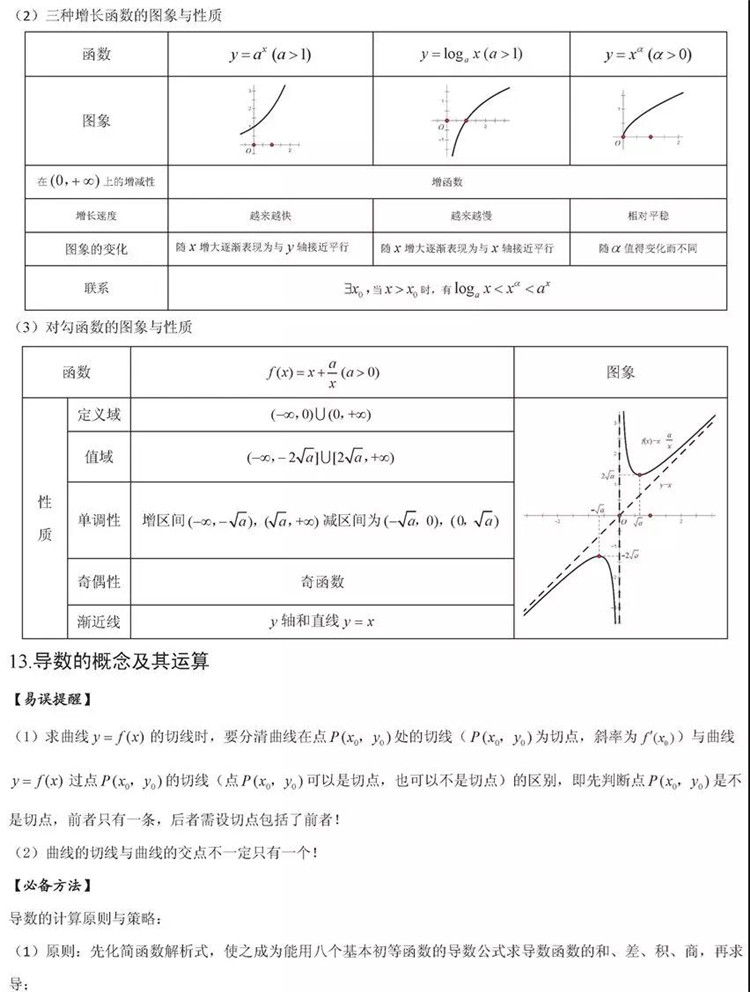 （2）三种增长函数的图象与性质
函数 y=aˣ (a>1) y=logₐ x (a>1) y=x^α (α>0)
图象
在(0，+∞)上的增减性 增函数
增长速度 越来越快 越来越慢 相对平稳
图象的变化 随 x 增大逐渐表现为与 y 轴接近平行 随 x 增大逐渐表现为与 x 轴接近平行 随 α 值得变化而不同
联系 ∃x₀，当 x>x₀ 时，有 logₐ x<x^α<aˣ
（3）对勾函数的图象与性质
函数 f(x)=x+a/x (a>0) 图象
性质
定义域 (−∞，0)∪(0，+∞)
值域 (−∞，−2√a]∪[2√a，+∞)
单调性 增区间(−∞，−√a)，(√a，+∞) 减区间为(−√a，0)，(0，√a)
奇偶性 奇函数
渐近线 y 轴和直线 y = x
2√a
−√a
O √a
−2√a
13.导数的概念及其运算
【易误提醒】
（1）求曲线 y=f(x) 的切线时，要分清曲线在点 P(x₀，y₀) 处的切线（P(x₀，y₀)为切点，斜率为 f′(x₀)）与曲线
y=f(x) 过点 P(x₀，y₀) 的切线（点 P(x₀，y₀) 可以是切点，也可以不是切点）的区别，即先判断点 P(x₀，y₀) 是不
是切点，前者只有一条，后者需设切点包括了前者！
（2）曲线的切线与曲线的交点不一定只有一个！
【必备方法】
导数的计算原则与策略：
（1）原则：先化简函数解析式，使之成为能用八个基本初等函数的导数公式求导数函数的和、差、积、商，再求
导：